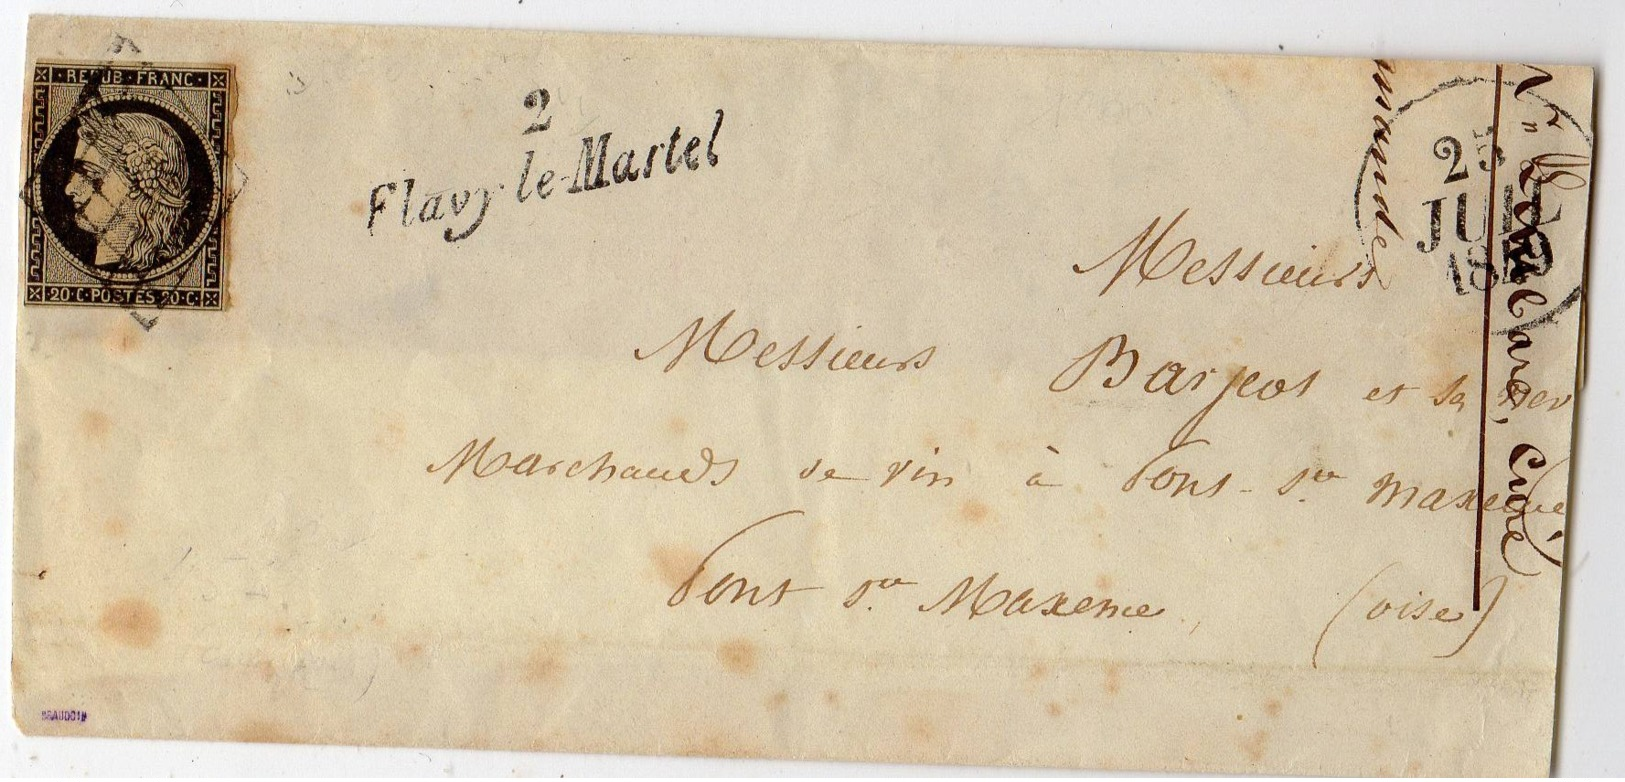 REPUB·FRANC·
20·C·POSTES·20·C·
2
Flavy-le-Martel
25
JUIL
1849
Messieurs
Messieurs Barjeot et sa
Marchands de vin à Pont-Ste Maxence
Pont Ste Maxence (oise)
Curé
BRAUDOIN